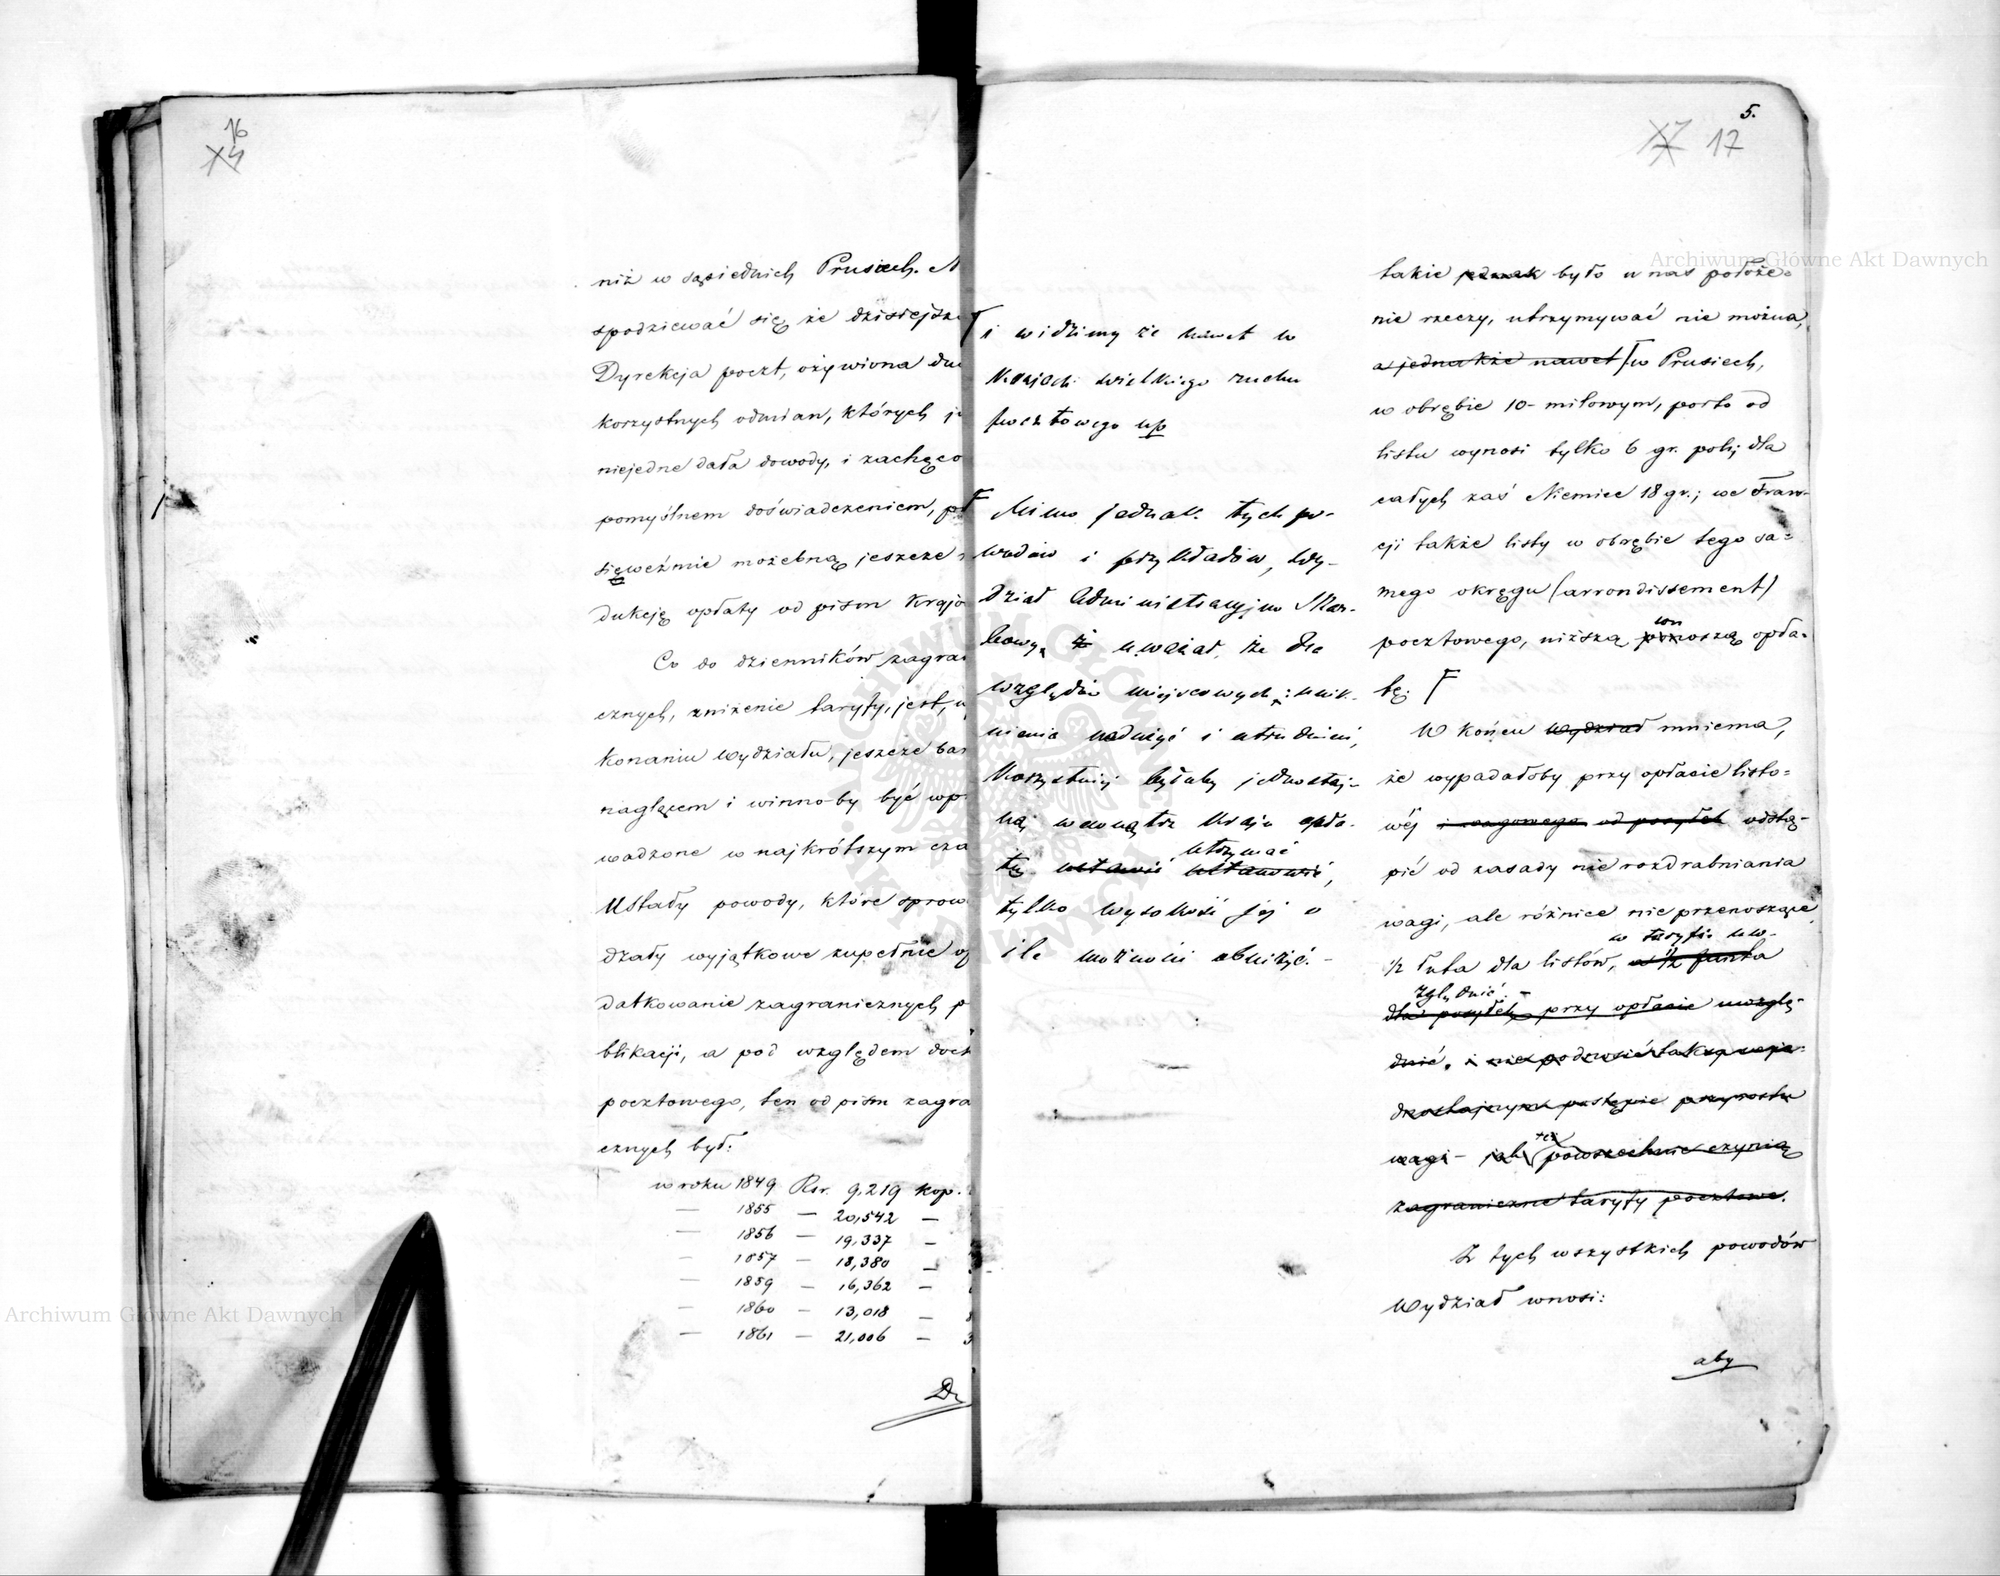 16
niż w sąsiednich Prusiech. N
spodziewać się że dzisiejsza
Dyrekcja poczt, ożywiona du
korzystnych odmian, których ju
niejedne dała dowody, i zachęco
pomyślnem doświadczeniem, p
sięweźmie możebną jeszcze
dukcję opłaty od pism krajo
Co do dzienników zagran
cznych, zniżenie taryfy, jest, w
konaniu wydziału, jeszcze bar
naglącem i winno-by być wpr
wadzone w najkrótszym cza
Ustały powody, które sprow
dzały wyjątkowe zupełnie op
datkowanie zagranicznych p
blikacji, a pod względem doch
pocztowego, ten od pism zagra
cznych był:
w roku 1849 Rsr. 9,219 kop.
— 1855 — 20,542 —
— 1856 — 19,337 —
— 1857 — 18,380 —
— 1859 — 16,362 —
— 1860 — 13,018 —
— 1861 — 21,006 — 3
i widzimy że nawet w
krajach wielkiego ruchu
pocztowego np
Mimo jednak tych po-
wodów i przykładów, Wy-
dział Administracyjno Skar-
bowy uważał, że dla
względów miejscowych i unik-
nienia nadużyć i utrudnień,
korzystniej byłaby jednostaj-
ną wewnątrz kraju opła-
utrzymać
tę ustawić ustanowić,
tylko wysokość jej o
ile możności obniżyć. -
5.
17
takie jednak było u nas położe-
nie rzeczy, utrzymywać nie można,
a jednakże nawet w Prusiech,
w obrębie 10-milowym, porto od
listu wynosi tylko 6 gr. pol; dla
całych zaś Niemiec 18 gr.; we Fran-
cji także listy w obrębie tego sa-
mego okręgu (arrondissement)
pocztowego, niższą ponoszą opła-
tę.
W końcu Wydział mniema,
że wypadałoby przy opłacie listo-
wéj i wagowego od posyłek odstą-
pić od zasady nie rozdrabniania
wagi, ale różnice nie przenoszące
w taryfie uw-
1/2 łuta dla listów, a 1/2 funta
zględnić. -
dla posyłek, przy opłacie uwzglę-
dnić. i nie podnosić taksą w je-
dnostajnym postępie przyrostu
też
wagi - jak powszechnie czynią
zagraniczne taryfy pocztowe.
Z tych wszystkich powodów
Wydział wnosi:
aby
Archiwum Główne Akt Dawnych
Archiwum Główne Akt Dawnych